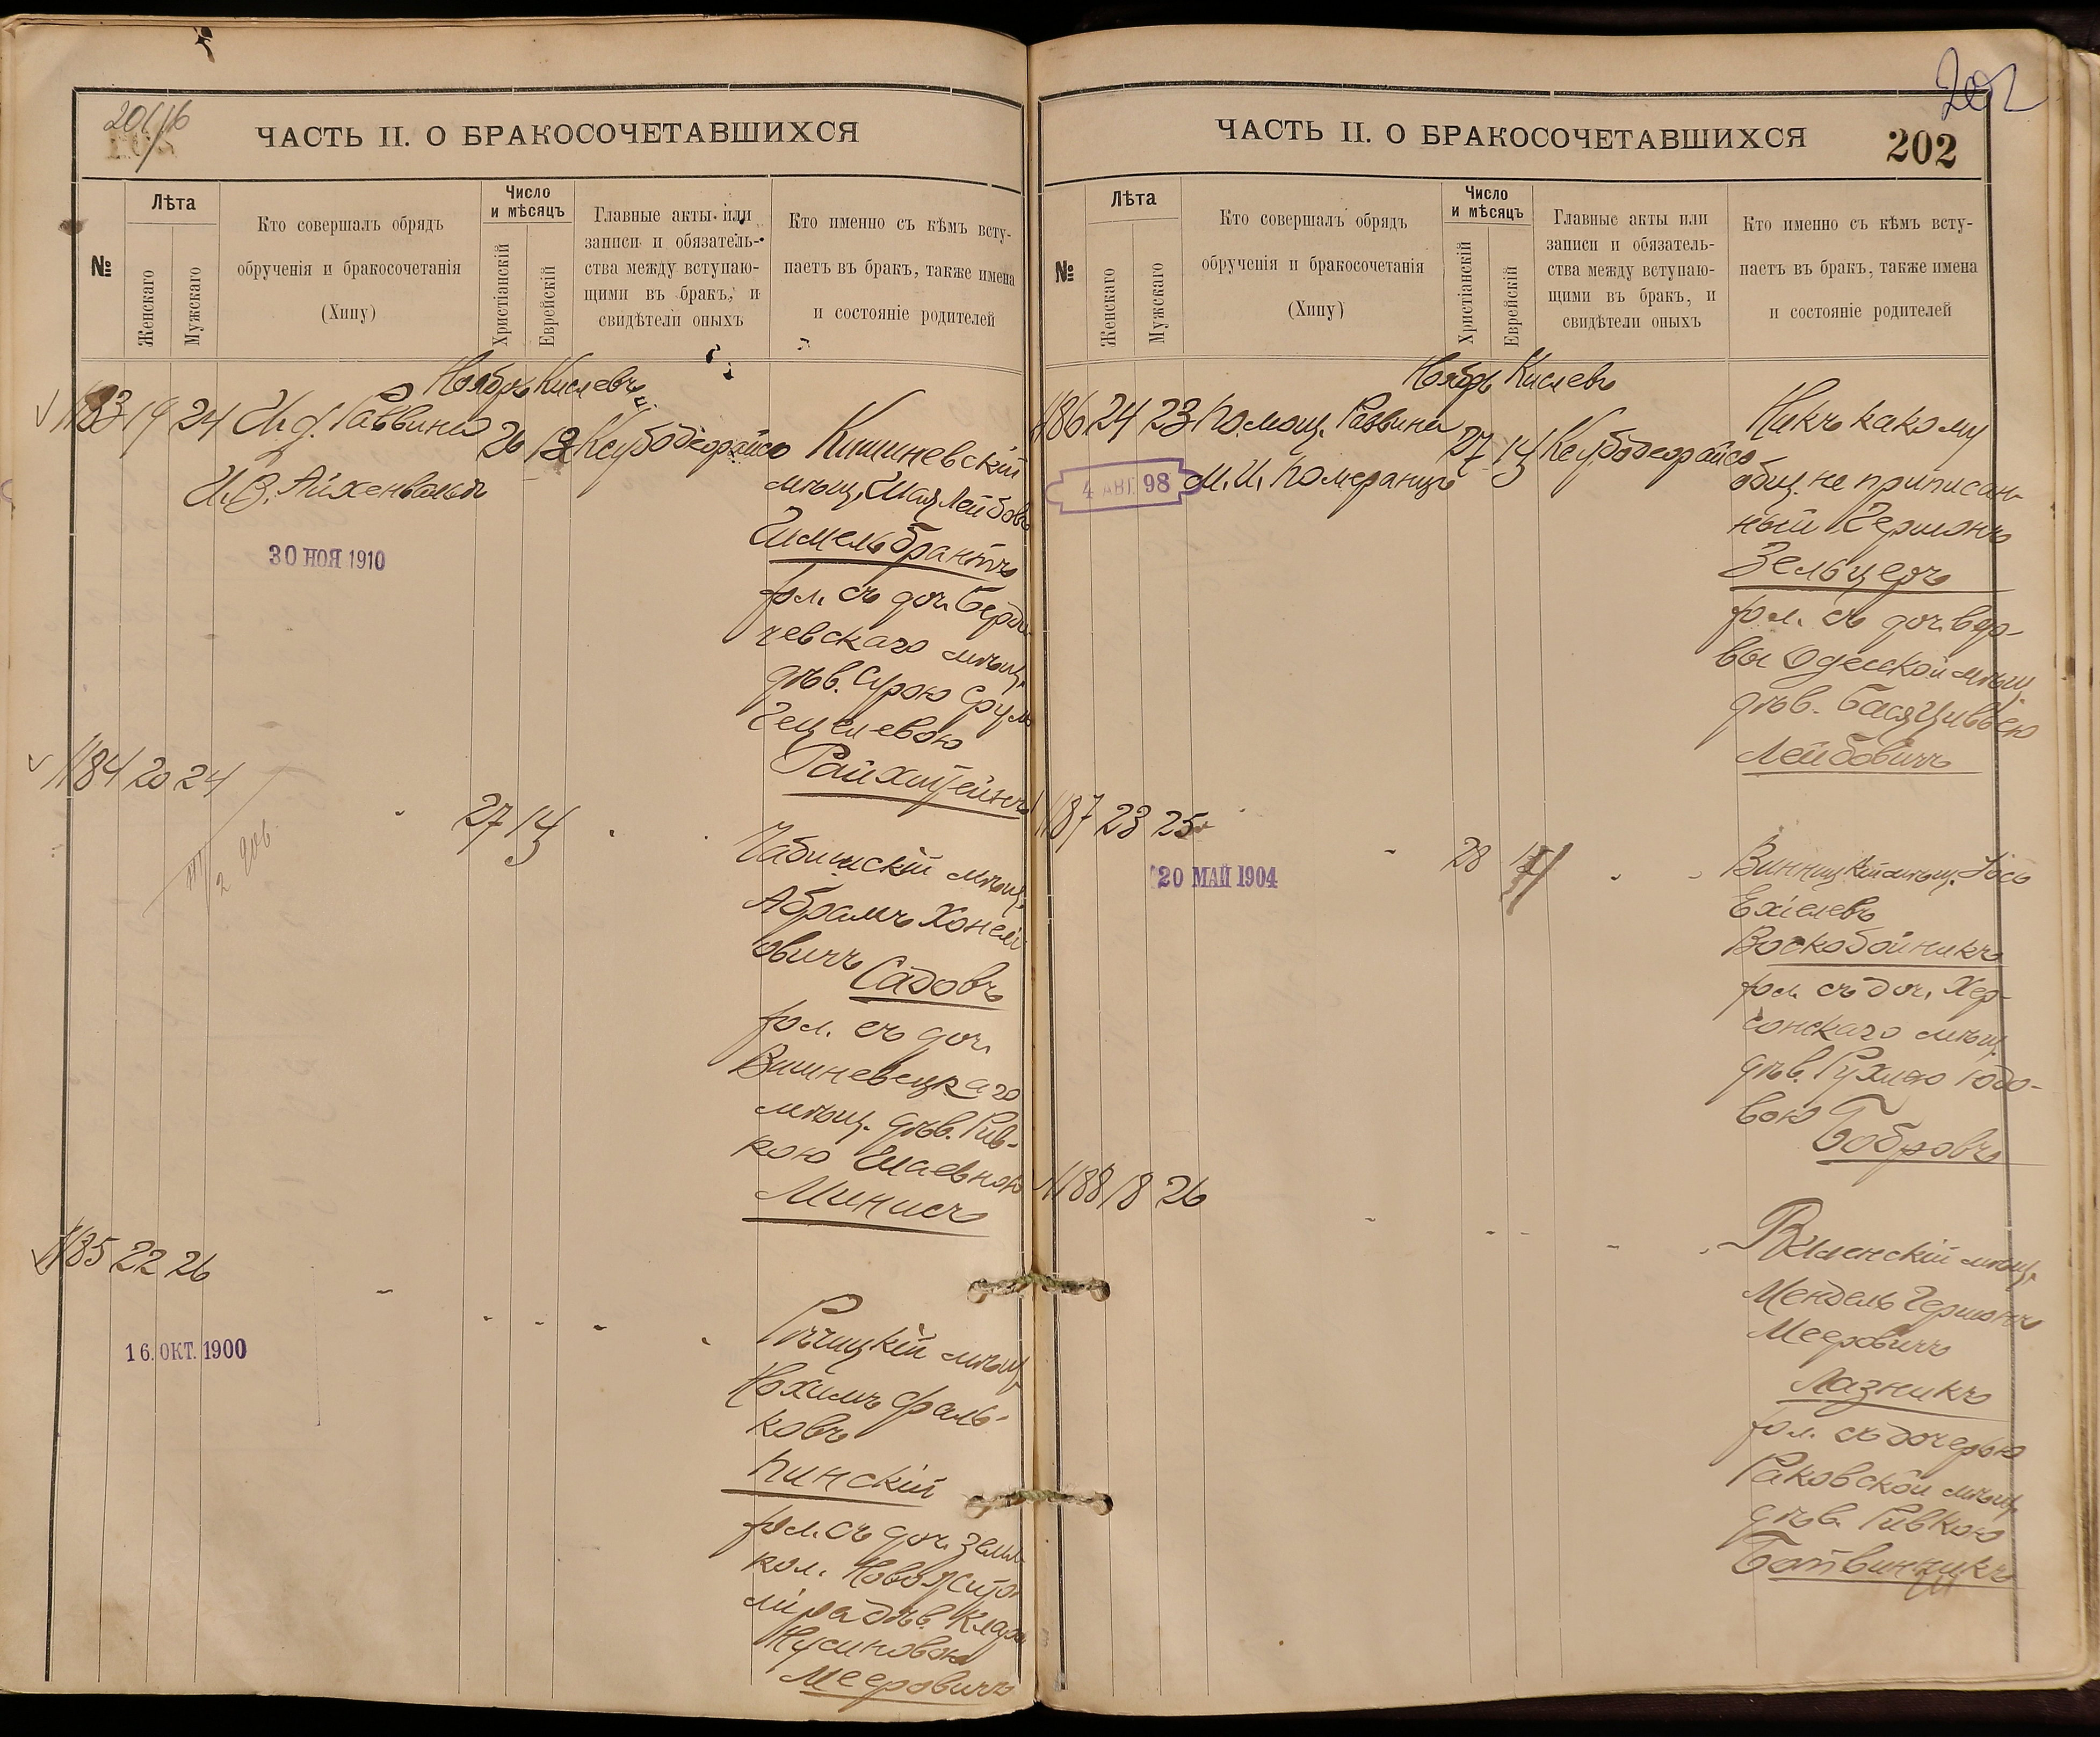 201/16
ЧАСТЬ II. О БРАКОСОЧЕТАВШИХСЯ
№
Лѣта
Женскаго
Мужскаго
Кто совершалъ обрядъ
обрученія и бракосочетанія
(Хипу)
Число
и мѣсяцъ
Христіанскій
Еврейскій
Главные акты или
записи и обязатель-
ства между вступаю-
щими въ бракъ, и
свидѣтели оныхъ
Кто именно съ кѣмъ всту-
паетъ въ бракъ, также имена
и состояніе родителей
Ноябрь Кислевъ
183 19 24 И. д. Раввина 26 13 Кеубодеорайсо
И. В. Айхенвальдъ
30 НОЯ 1910
Кишиневскій
мѣщ. Шая Лейбовъ
Гимельбрантъ
хол. съ доч. Берди
чевскаго мѣщ.
дѣв. Сурою Срулъ
Гецелевою
Райхштейнъ
184 20 24 27 14
Чабишскій мѣщ.
Абрамъ Хонел
овичъ Садовъ
хол. съ доч.
Вишневецкаго
мѣщ. дѣв. Рив-
кою Шаевною
Минисъ
185 22 26
16. ОКТ. 1900
Рѣчицкій мѣщ.
Нохимъ Фаль-
ковъ
Пинскій
хол. съ доч. земл.
кол. Ново-Жито
міра дѣв. Клара
Нусиновою
Мееровичъ
202
ЧАСТЬ II. О БРАКОСОЧЕТАВШИХСЯ
202
№
Лѣта
Женскаго
Мужскаго
Кто совершалъ обрядъ
обрученія и бракосочетанія
(Хипу)
Число
и мѣсяцъ
Христіанскій
Еврейскій
Главные акты или
записи и обязатель-
ства между вступаю-
щими въ бракъ, и
свидѣтели оныхъ
Кто именно съ кѣмъ всту-
паетъ въ бракъ, также имена
и состояніе родителей
Ноябрь Кислевъ
186 24 23 Помощ. Раввина 27 14 Кеубодеорайсо
М. И. Померанцъ
4 АВГ. 98
Никъ какому
общ. не приписан-
ный Гершонъ
Зельцеръ
хол. съ доч. вдо-
вы Одесской мѣщ.
дѣв. Бася Цивьею
Лейбовичъ
187 23 25 28
20 МАЙ 1904
Винницкій мѣщ. Іось
Ехіелевъ
Воскобойникъ
хол. съ доч. Хер-
сонскаго мѣщ.
дѣв. Рухлею Юдо-
вою Бобровъ
188 18 26
Виленскій мѣщ.
Мендель Гершонъ
Мееровичъ
Лазникъ
хол. съ дочерью
Раковской мѣщ.
дѣв. Ривкою
Ботвинникъ